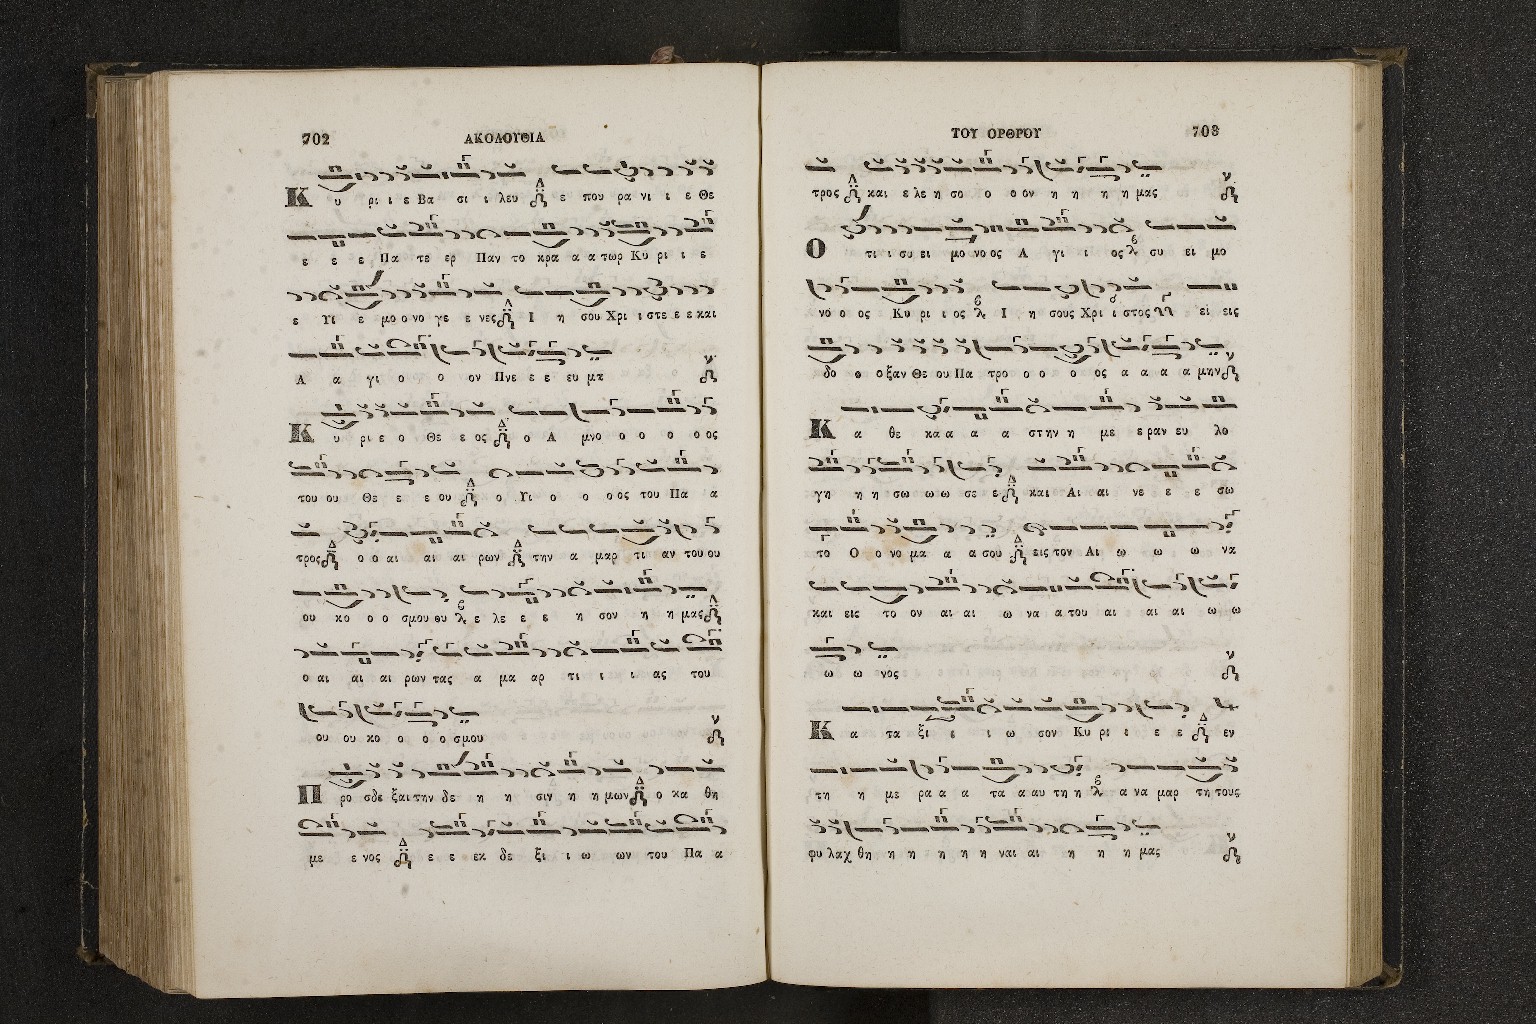 702 ΑΚΟΛΟΥΘΙΑ
Κ υ ρι ι ε Βα σι ι λευ ε που ρα νι ι ε Θε
ε ε ε Πα τε ερ Παν το κρα α α τωρ Κυ ρι ι ε
ε Υι ε μο ο νο γε ε νες Ι η σου Χρι ι στε ε ε και
Α α γι ο ο ον Πνε ε ε ευ μα
Κ υ ρι ε ο Θε ε ος ο Α μνο ο ο ο ο ος
του ου Θε ε ε ου ο Υι ο ο ο ος του Πα α
τρος ο ο αι αι αι ρων την α μαρ τι αν του ου
ου κο ο ο σμου ου ε λε ε ε η σον η η μας
ο αι αι αι ρων τας α μα αρ τι ι ι ας του
ου ου κο ο ο ο σμου
Π ρο σδε ξαι την δε η η σιν η η μων ο κα θη
με ε νος ε ε εκ δε ξι ι ω ων του Πα α
ΤΟΥ ΟΡΘΡΟΥ 703
τρος και ε λε η σο ο ο ον η η η η μας
Ο τι ι συ ει μο νο ος Α γι ι ος συ ει μο
νο ο ος Κυ ρι ι ος Ι η σους Χρι ι στος εί εις
δο ο ο ξαν Θε ου Πα τρο ο ο ο ος α α α α μην
Κ α θε κα α α α στην η με ε ραν ευ λο
γη η η σω ω ω σε ε και Αι αι νε ε ε σω
το Ο ο νο μα α α σου εις τον Αι ω ω ω να
και εις το ον αι αι ω να α του αι αι αι ω ω
ω ω νος
Κ α τα ξι ι ι ω σον Κυ ρι ε ε ε εν
τη η με ρα α α τα α αυ τη η α να μαρ τη τους
φυ λαχ θη η η η η η ναι αι η η η μας